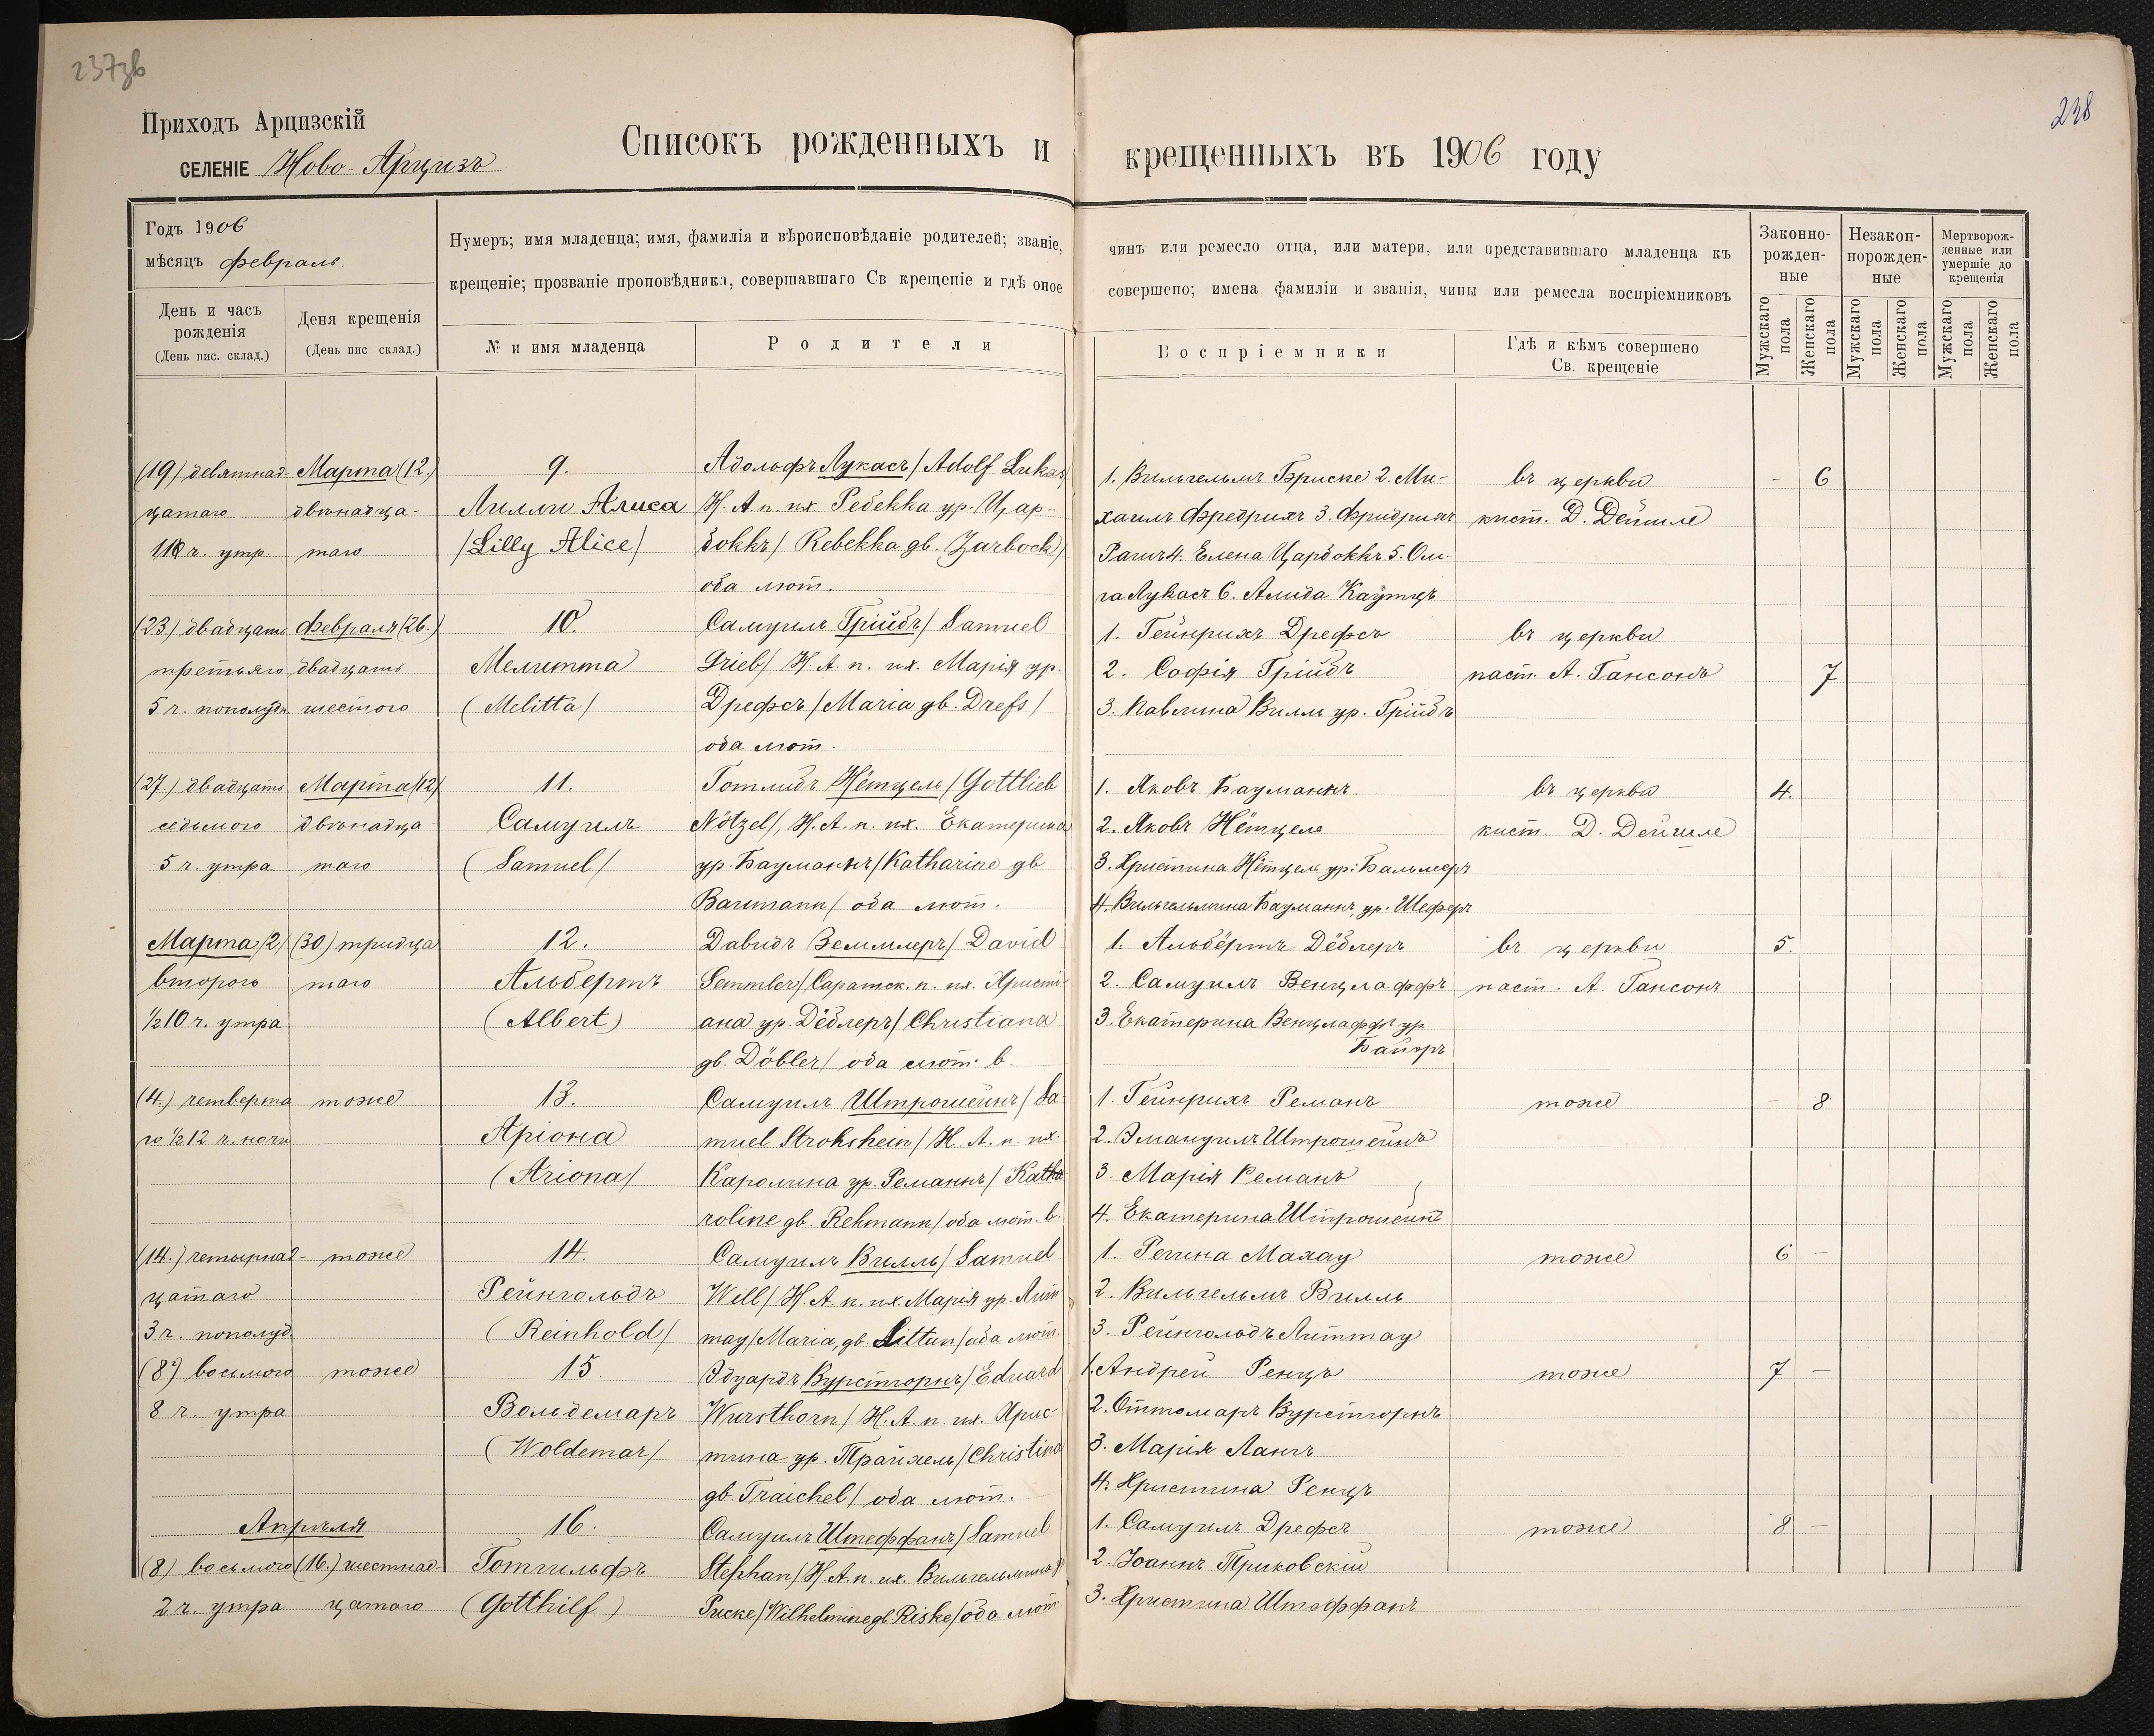 237зв
238
Приходъ Арцизскій
СЕЛЕНІЕ Ново-Арцизъ
Списокъ рожденныхъ и крещенныхъ въ 1906 году
Годъ 1906
мѣсяцъ Февраль.
День и часъ рожденія
(День пис. склад.)
Деня крещенія
(День пис склад.)
Нумеръ; имя младенца; имя, фамилія и вѣроисповѣданіе родителей; званіе, чинъ или ремесло отца, или матери, или представившаго младенца къ
крещеніе; прозваніе проповѣдника, совершавшаго Св крещеніе и гдѣ оное совершено; имена фамиліи и званія, чины или ремесла воспріемниковъ
№ и имя младенца
Родители
Воспріемники
Гдѣ и кѣмъ совершено
Св. крещеніе
Законно-
рожден-
ные
Незакон-
норожден-
ные
Мертворож-
денные или
умершіе до
крещенія
Мужскаго пола
Женскаго пола
Мужскаго пола
Женскаго пола
Мужскаго пола
Женскаго пола
(19) девятнад- Марта (12.) 9. Адольфъ Лукасъ/ Adolf Lukas/ 1. Вильгельмъ Бриске 2. Ми- въ церкви - 6
цатаго двѣнадца- Лилли Алиса Н. А. п. их Ребекка ур. Цар- хаилъ Фредрихъ 3. Фридрихъ кист. Д. Дейшле
ч. утр. таго /Lilly Alice/ боккъ/ Rebekka gb. Zarbock/ 4. Елена Царбоккъ 5. Оль-
оба лют. га Лукасъ 6. Алида Каутцъ
(23) двадцать Февраля (26.) 10. Самуилъ Грійбъ/ Samuel 1. Гейнрихъ Дрефсъ въ церкви
третьяго двадцать Мелитта Grieb/ Н. А. п. их. Марія ур. 2. Софія Грійбъ паст. А. Гансонъ 7
5 ч. пополудн. шестого (Melitta/ Дрефсъ/ Maria gb. Drefs/ 3. Павлина Вилль ур. Грійбъ
оба лют.
(27.) двадцать Марта (12) 11. Готлибъ Нётцель/ Gottlieb 1. Яковъ Бауманнъ въ церкви 4.
седьмого двѣнадца Самуилъ Nötzel/, Н. А. п. их. Екатерина 2. Яковъ Нётцель кист. Д. Дейшле
5 ч. утра таго (Samuel/ ур. Бауманнъ/ Katharine gb 3. Христина Нётцель ур: Бальмеръ
Baumann/ оба лют. 4. Вильгельмина Бауманнъ, ур. Шеферъ
Марта (2) (30) тридца 12. Давидъ Земмлеръ/ David 1. Альбёртъ Дёблеръ въ церкви 5.
второго таго Альбертъ Semmler/ Саратск. п. их. Христі- 2. Самуилъ Венцлаффъ паст. А. Гансонъ
½10 ч. утра (Albert) ана ур. Дёблеръ/ Christiana 3. Екатерина Венцлаффъ ур.
gb. Döbler/ оба лют. в. Байеръ
(4.) четверта тоже 13. Самуилъ Штрошейнъ/ Sa- 1. Гейнрихъ Реманъ тоже - 8
го ½12 ч. ночи Аріона muel Strohshein/ Н. А. п. их. 2. Эмануилъ Штрошейнъ
(Ariona/ Каролина ур. Реманнъ/ Ka 3. Марія Реманъ
roline gb. Rehmann/ оба лют. в. 4. Екатерина Штрошейнъ
(14.) четырнад- тоже 14. Самуилъ Вилль/ Samuel 1. Регина Махау тоже 6 -
цатаго Рейнгольдъ Will/ Н. А. п. их. Марія ур. Лит 2. Вильгельмъ Вилль
3 ч. пополуд. (Reinhold/ тау/ Maria, gb. Littau/ оба лют. 3. Рейнгольдъ Литтау
(8) восьмого тоже 15. Эдуардъ Вурстгорнъ/ Eduard 1. Андрей Ренцъ тоже 7 -
8 ч. утра Вольдемаръ Wursthorn/ Н. А. п. их. Хрис- 2. Оттомаръ Вурстгорнъ
(Woldemar/ тина ур. Трайхель/ Christina 3. Марія Лангъ
gb. Traichel/ оба лют. 4. Христина Ренцъ
Апрѣля 16. Самуилъ Штеффанъ/ Samuel 1. Самуилъ Дрефсъ тоже 8 -
(8) восьмого (16.) шестнад- Готгильфъ Stephan/ Н. А. п. их. Вильгельмина 2. Іоаннъ Триковскій
2 ч. утра цатаго (Gotthilf) Риске/ Wilhelmine gb. Riske/ оба лют 3. Христина Штеффанъ